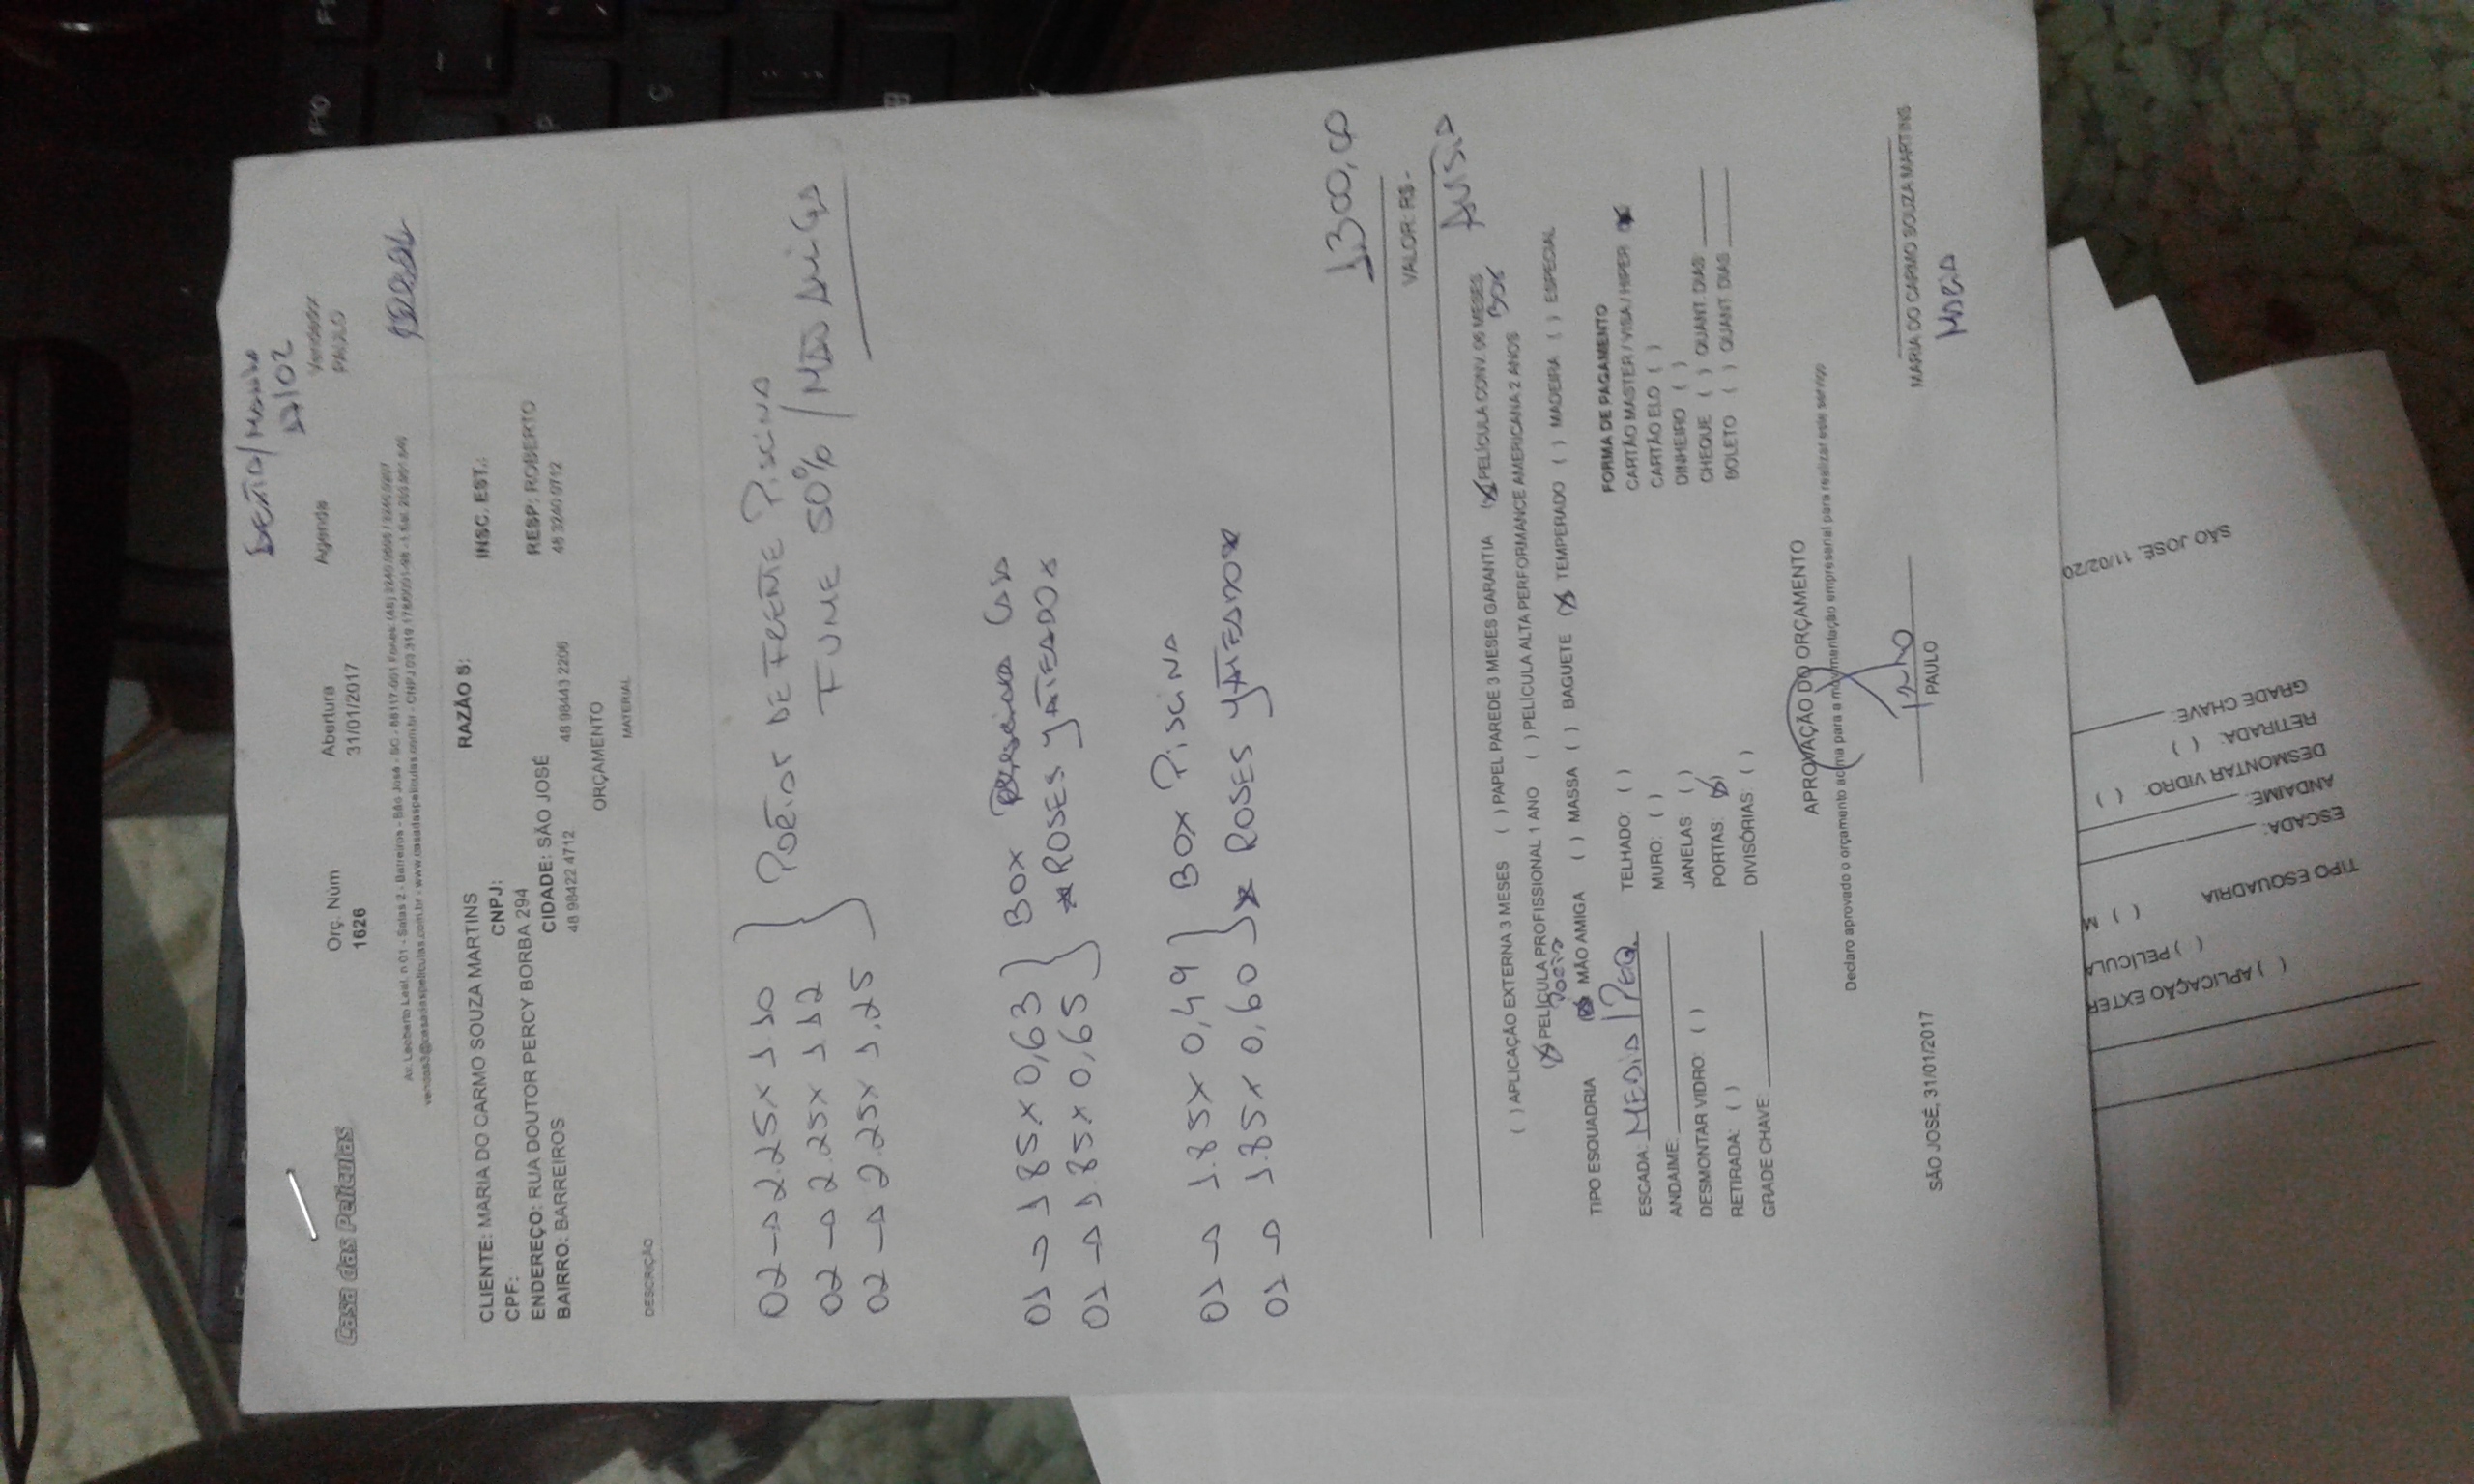 SEXTA/MANHÃ
17/02
Casa das Películas
Orç. Núm
1626
Abertura
31/01/2017
Agenda
Vendedor
PAULO
Av. Leoberto Leal, n 01 - Salas 2 - Barreiros - São José - SC - 88117-001 Fones: (48)
vendas3@casadaspeliculas.com.br - www.casadaspeliculas.com.br - CNPJ
CLIENTE: MARIA DO CARMO SOUZA MARTINS
RAZÃO S:
INSC. EST.:
CPF:
CNPJ:
ENDEREÇO: RUA DOUTOR PERCY BORBA 294
RESP: ROBERTO
BAIRRO: BARREIROS
CIDADE: SÃO JOSÉ
48 98422 4712
48 98443 2206
48 3240 0712
ORÇAMENTO
DESCRIÇÃO
MATERIAL
02 → 2.25 x 1.10
02 → 2.25 x 1.12
02 → 2.25 x 1,25
PORTAS DE FRENTE PISCINA
FUME 50% / MÃO AMIGA
01 → 1.85 x 0,63
01 → 1.85 x 0,65
BOX CASA
* ROSES JATEADO *
01 → 1.85 x 0,49
01 → 1.85 x 0,60
BOX PISCINA
* ROSES JATEADO *
1300,00
VALOR: R$ -
( ) APLICAÇÃO EXTERNA 3 MESES ( ) PAPEL PAREDE 3 MESES GARANTIA (X) PELÍCULA CONV. 06 MESES
BOX
(X) PELÍCULA PROFISSIONAL 1 ANO ( ) PELÍCULA ALTA PERFORMANCE AMERICANA 2 ANOS
TIPO ESQUADRIA (X) MÃO AMIGA ( ) MASSA ( ) BAGUETE (X) TEMPERADO ( ) MADEIRA ( ) ESPECIAL
ESCADA: MEDIA / PEQ.
ANDAIME:
DESMONTAR VIDRO: ( )
RETIRADA: ( )
GRADE CHAVE:
TELHADO: ( )
MURO: ( )
JANELAS: ( )
PORTAS: (X)
DIVISÓRIAS: ( )
FORMA DE PAGAMENTO
CARTÃO MASTER / VISA / HIPER (X)
CARTÃO ELO ( )
DINHEIRO ( )
CHEQUE ( ) QUANT. DIAS
BOLETO ( ) QUANT. DIAS
APROVAÇÃO DO ORÇAMENTO
Declaro aprovado o orçamento acima para a movimentação empresarial para realizar este serviço
SÃO JOSÉ, 31/01/2017
Paulo
PAULO
MARIA DO CARMO SOUZA MARTINS
MARIA
SÃO JOSÉ, 11/02/20
GRADE CHAVE:
RETIRADA: ( )
DESMONTAR VIDRO: ( )
ANDAIME:
ESCADA:
TIPO ESQUADRIA ( ) M
( ) PELÍCULA
( ) APLICAÇÃO EXTER